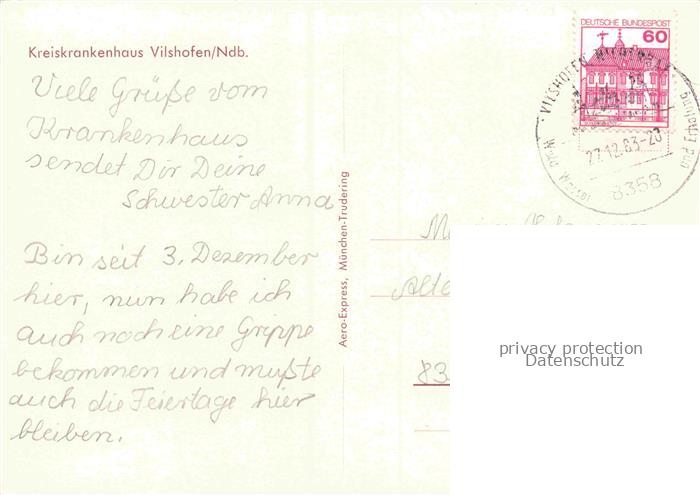 DEUTSCHE BUNDESPOST
60
Kreiskrankenhaus Vilshofen/Ndb.
Viele Grüße vom
Krankenhaus
sendet Dir Deine
Schwester Anna
Bin seit 3. Dezember
hier, nun habe ich
auch noch eine Grippe
bekommen und mußte
auch die Feiertage hier
bleiben.
Aero-Express, München-Trudering
VILSHOFEN, NIEDERBAY
27.12.83-20
8358
und Erholung
Alte
83
privacy protection
Datenschutz